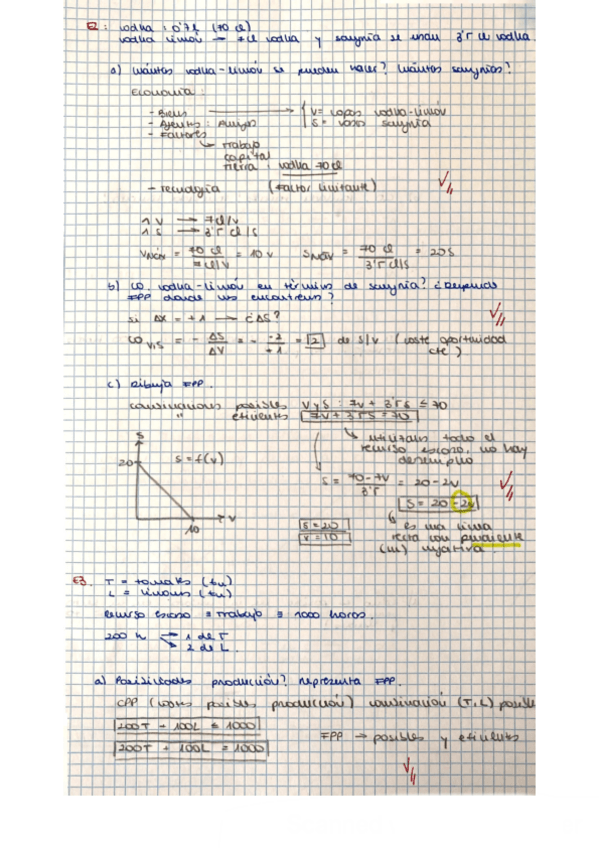 E2: vodka : 0'7l (70 cl)
vodka limón → 7cl vodka y sangría se usan 3'5 cl vodka.
a) ¿Cuántos vodka-limón se pueden hacer? ¿Cuántas sangrías?
Economía:
- Bienes → V = copas vodka-limón
- Agentes: Amigos S = vaso sangría
- Factores
↳ Trabajo
capital
tierra: vodka 70 cl
- Tecnología (factor limitante)
1 V → 7cl/V
1 S → 3'5 cl/S
VMÁX = 70 cl / 7cl/V = 10 V SMÁX = 70 cl / 3'5 cl/S = 20 S
b) CO. vodka-limón en términos de sangría? ¿Depende
FPP donde nos encontremos?
si ΔX = +1 → ¿ΔS?
CO V/S = - ΔS/ΔV = - -2/+1 = 2 de S/V (coste oportunidad
cte)
c) Dibuja FPP.
combinaciones posibles V y S: 7V + 3'5S ≤ 70
" eficientes 7V + 3'5S = 70
↳ utilizais todo el
recurso escaso, no hay
desempleo
S
20 S = f(V)
10 V
S = 70-7V / 3'5 = 20 - 2V
S = 20 - 2V
S = 20
V = 10
↳ es una línea
recta con pendiente
(m) negativa.
E3. T = tomates (tn)
L = limones (tn)
recurso escaso = Trabajo = 1000 horas.
200 h → 1 de T
→ 2 de L.
a) Posibilidades producción? representa FPP.
CPP (conj. posibles producción) combinación (T,L) posible
200T + 100L ≤ 1000
200T + 100L = 1000
FPP → posibles y eficientes